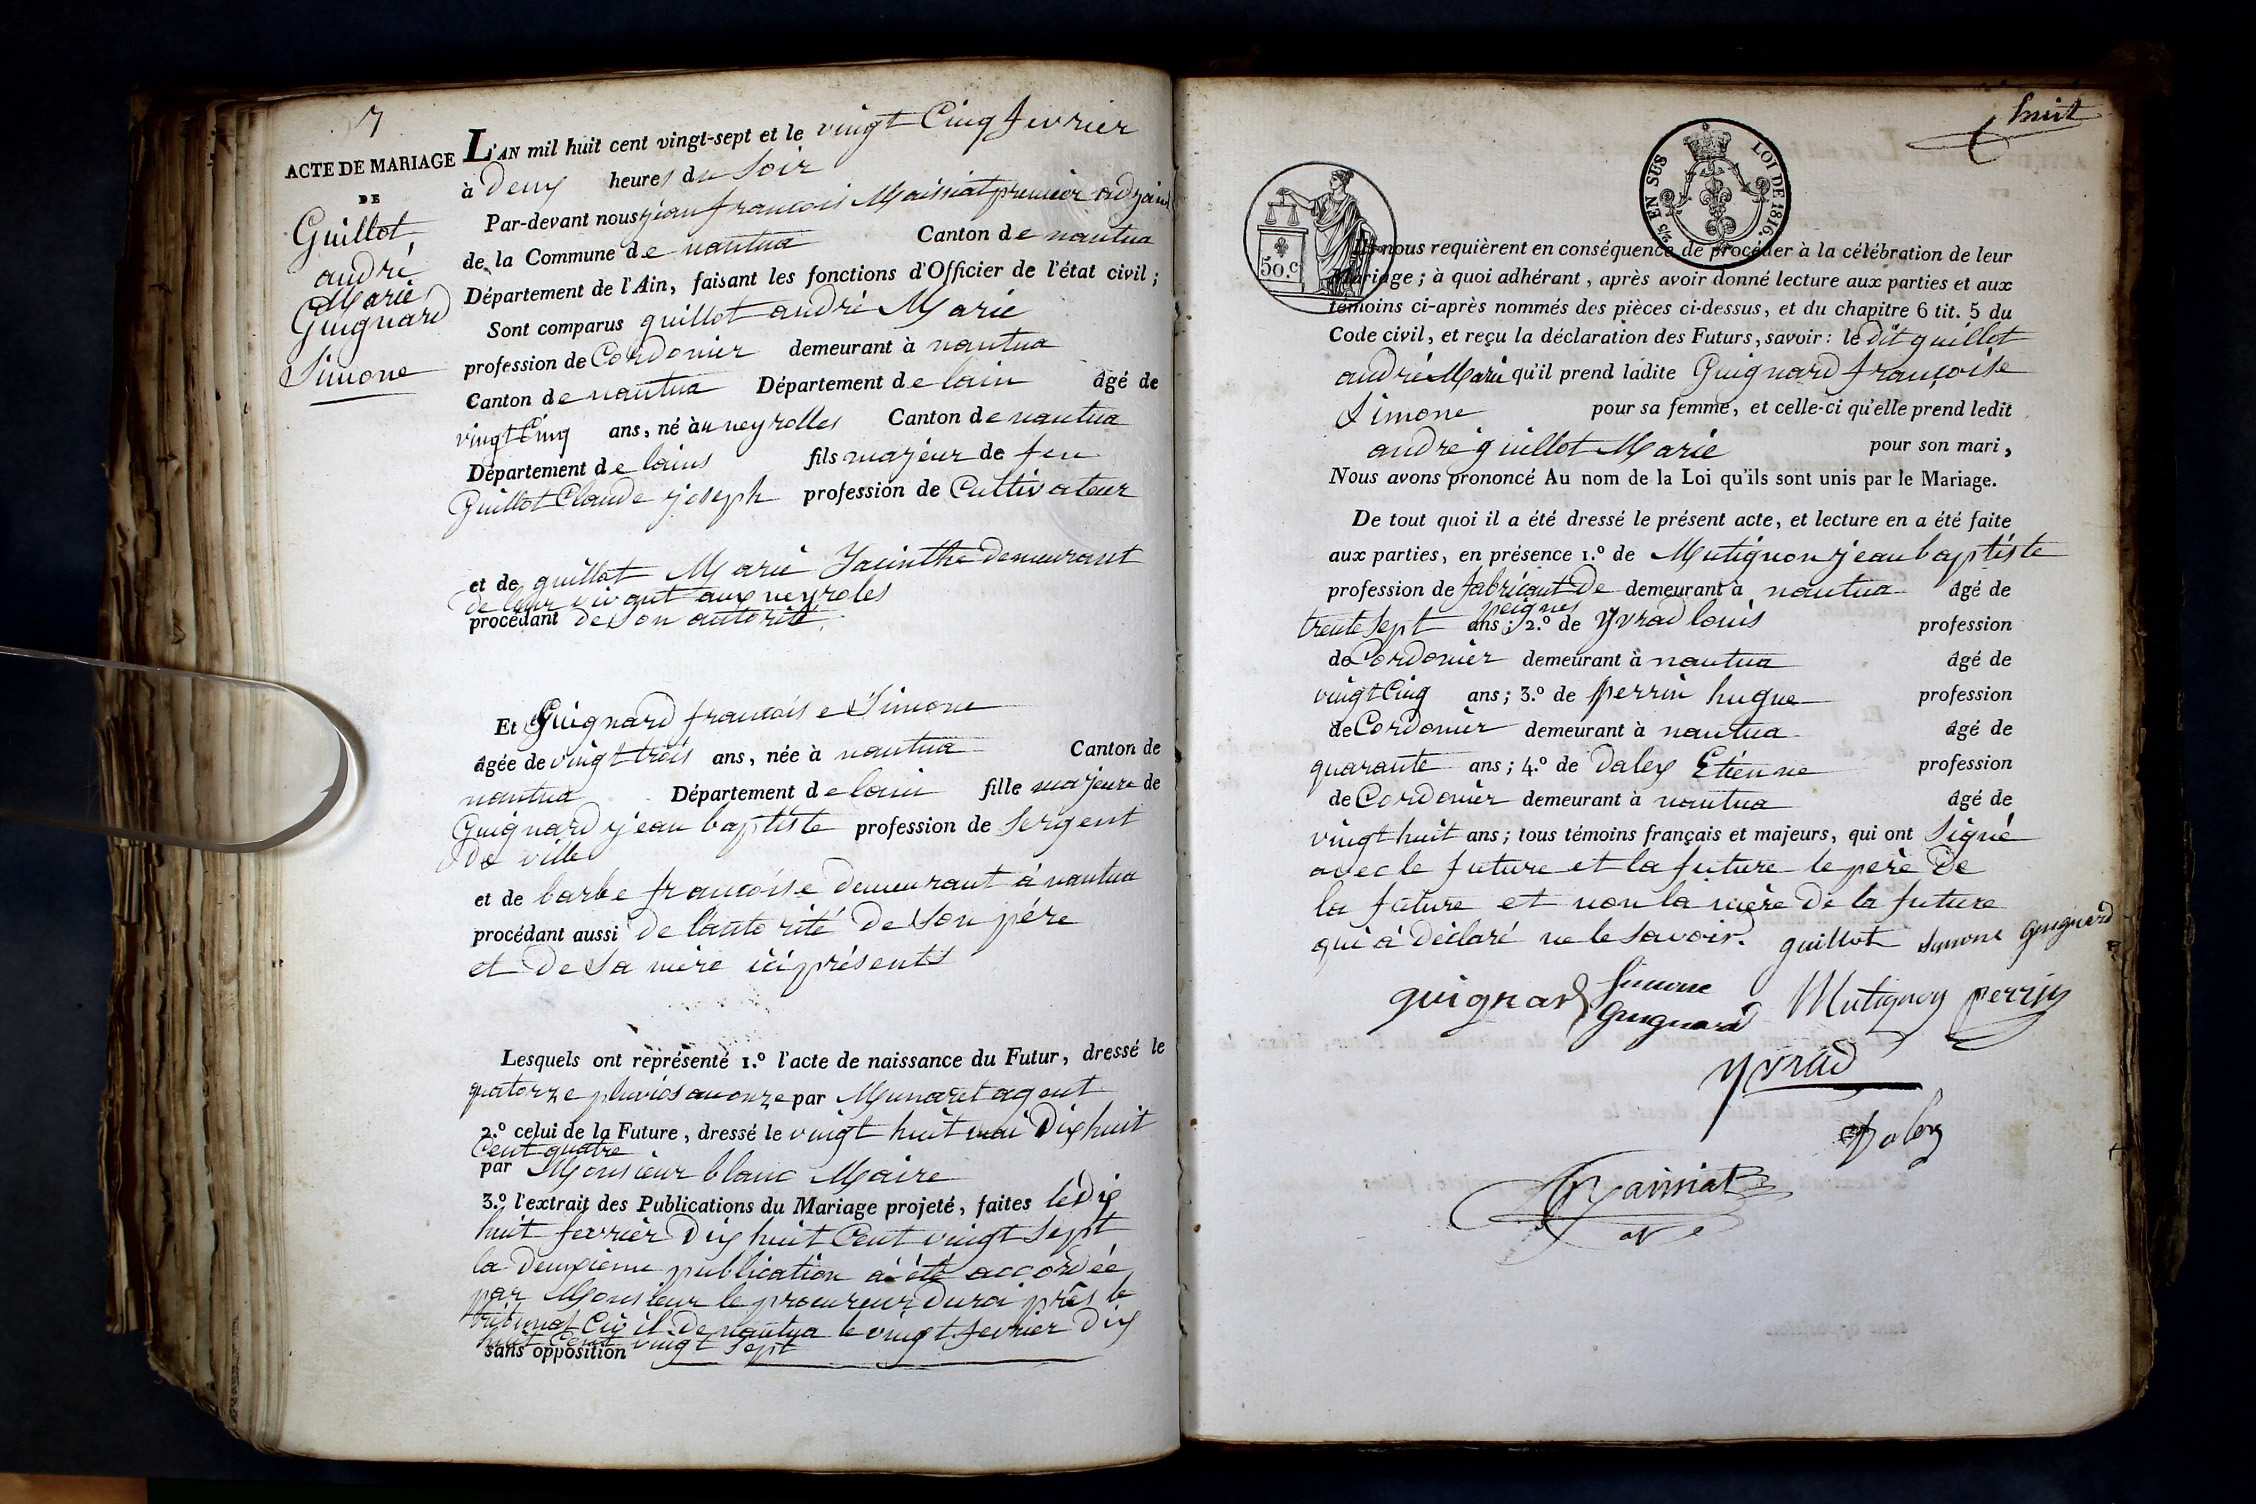 7
ACTE DE MARIAGE
DE
Guillot
andré
Marie
Guignard
Simone
L'AN mil huit cent vingt-sept et le vingt Cinq fevrier
à deux heures du Soir
Par-devant nous jean francois Maissiat premier adjoint
de la Commune de nantua Canton de nantua
Département de l'Ain, faisant les fonctions d'Officier de l'état civil;
Sont comparus guillot andré Marie
profession de Cordonier demeurant à nantua
Canton de nantua Département de lain âgé de
vingt Cinq ans, né à neyrolles Canton de nantua
Département de lains fils majeur de feu
Guillot Claude joseph profession de Cultivateur
et de guillot Marie Jacinthe demeurant
de leur vivant aux neyroles
procédant de Son autorité
Et Guignard francoise Simone
âgée de vingt trois ans, née à nantua Canton de
nantua Département de lain fille majeure de
Guignard jean baptiste profession de Sergent
de ville
et de barbe francoise demeurant à nantua
procédant aussi de lautorité de Son pére
et de Sa mère ici présents
Lesquels ont représenté 1.º l'acte de naissance du Futur, dressé le
quatorze pluvios an onze par Munaret agent
2.º celui de la Future, dressé le vingt huit mai dix huit
Cent quatre
par Monsieur blanc Maire
3.º l'extrait des Publications du Mariage projeté, faites le dix
huit fevrier dix huit Cent vingt Sept
la deuxieme publication a été accordée
par Monsieur le procureur du roi près le
tribunal Civil de nantua le vingt fevrier dix
huit Cent vingt Sept
sans opposition
huit
2/5 EN SUS LOI DE 1816.
50.c
Ils nous requièrent en conséquence de procéder à la célébration de leur
Mariage; à quoi adhérant, après avoir donné lecture aux parties et aux
témoins ci-après nommés des pièces ci-dessus, et du chapitre 6 tit. 5 du
Code civil, et reçu la déclaration des Futurs, savoir: le dit guillot
andré Marie qu'il prend ladite Guignard françoise
Simone pour sa femme, et celle-ci qu'elle prend ledit
andré guillot Marie pour son mari,
Nous avons prononcé Au nom de la Loi qu'ils sont unis par le Mariage.
De tout quoi il a été dressé le présent acte, et lecture en a été faite
aux parties, en présence 1.º de Mutignon jean baptiste
profession de fabricant de demeurant à nantua âgé de
peignes
trente Sept ans; 2.º de Yvrad louis profession
de Cordonier demeurant à nantua âgé de
vingt Cinq ans; 3.º de perrin hugue profession
de Cordonier demeurant à nantua âgé de
quarante ans; 4.º de daley Etienne profession
de Cordonier demeurant à nantua âgé de
vingt huit ans; tous témoins français et majeurs, qui ont Signé
avec le future et la future le père de
la future et non la mère de la future
qui a déclaré ne le Savoir. guillot Simone Guignard
guignard Simone Guignard Mutignon perrin
yvrad
daley
Maissiat